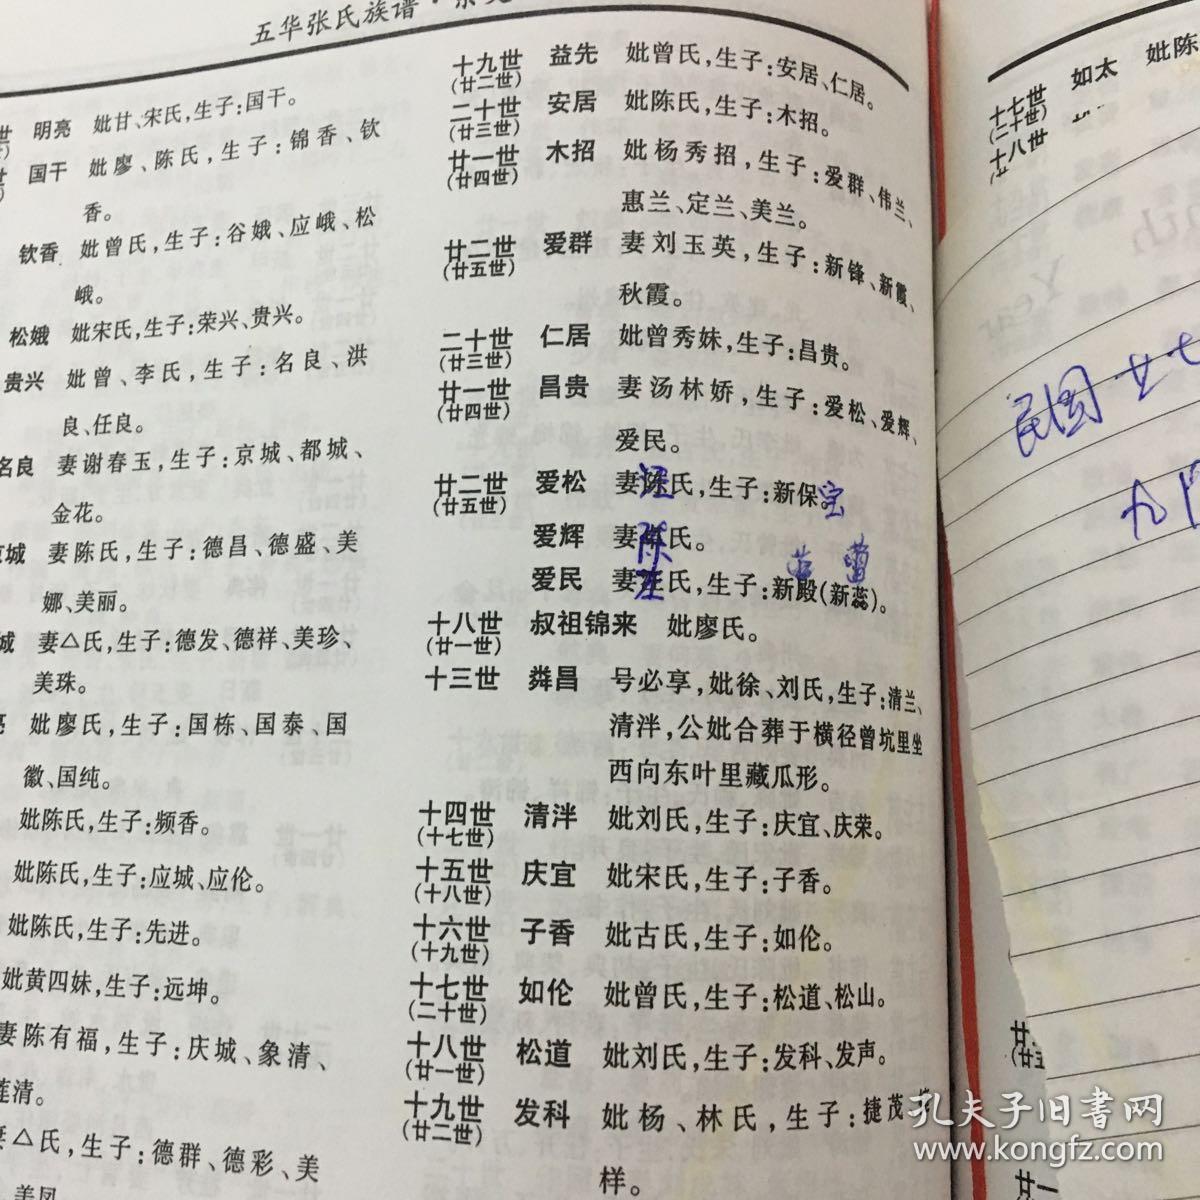 五华张氏族谱·
明亮 妣甘、宋氏,生子:国干。
国干 妣廖、陈氏,生子:锦香、钦
香。
钦香 妣曾氏,生子:谷娥、应峨、松
峨。
松娥 妣宋氏,生子:荣兴、贵兴。
贵兴 妣曾、李氏,生子:名良、洪
良、任良。
名良 妻谢春玉,生子:京城、都城、
金花。
京城 妻陈氏,生子:德昌、德盛、美
娜、美丽。
城 妻△氏,生子:德发、德祥、美珍、
美珠。
亮 妣廖氏,生子:国栋、国泰、国
徽、国纯。
妣陈氏,生子:频香。
妣陈氏,生子:应城、应伦。
妣陈氏,生子:先进。
妣黄四妹,生子:远坤。
妻陈有福,生子:庆城、象清、
莲清。
妻△氏,生子:德群、德彩、美
美凤
十九世 益先 妣曾氏,生子:安居、仁居。
(廿二世)
二十世 安居 妣陈氏,生子:木招。
(廿三世)
廿一世 木招 妣杨秀招,生子:爱群、伟兰、
(廿四世)
惠兰、定兰、美兰。
廿二世 爱群 妻刘玉英,生子:新锋、新霞、
(廿五世)
秋霞。
二十世 仁居 妣曾秀妹,生子:昌贵。
(廿三世)
廿一世 昌贵 妻汤林娇,生子:爱松、爱辉、
(廿四世)
爱民。
廿二世 爱松 妻陈氏,生子:新保。
(廿五世)
宝
爱辉 妻氏。
陈
爱民 妻汪氏,生子:新殿(新蕊)。
蕾
十八世 叔祖锦来 妣廖氏。
(廿一世)
十三世 粦昌 号必享,妣徐、刘氏,生子:清兰、
清泮,公妣合葬于横径曾坑里坐
西向东叶里藏瓜形。
十四世 清泮 妣刘氏,生子:庆宜、庆荣。
(十七世)
十五世 庆宜 妣宋氏,生子:子香。
(十八世)
十六世 子香 妣古氏,生子:如伦。
(十九世)
十七世 如伦 妣曾氏,生子:松道、松山。
(二十世)
十八世 松道 妣刘氏,生子:发科、发声。
(廿一世)
十九世 发科 妣杨、林氏,生子:捷茂、
(廿二世)
样。
十七世 如太 妣陈
(二十世)
十八世
Year
民国廿七
九
廿一
孔夫子旧书网
www.kongfz.com